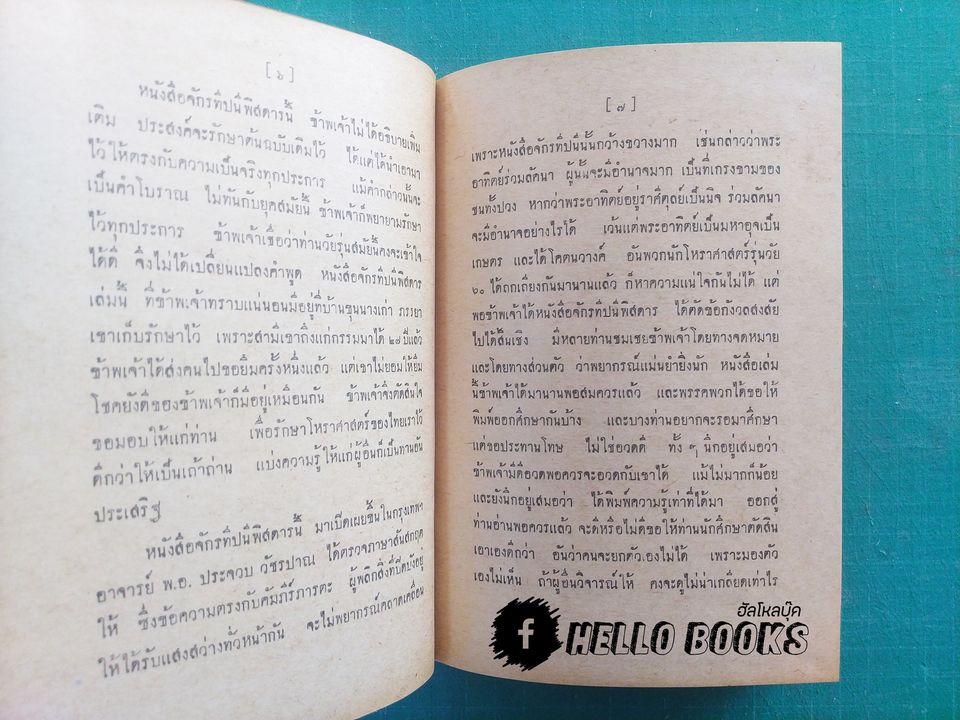 [ ๖ ]
หนังสือจักรทีปนีพิสดารนี้ ข้าพเจ้าไม่ได้อธิบายเพิ่ม
เติม ประสงค์จะรักษาต้นฉบับเดิมไว้ ได้แต่ได้นำเอามา
ไว้ให้ตรงกับความเป็นจริงทุกประการ แม้คำกล่าวนั้นจะ
เป็นคำโบราณ ไม่ทันกับยุคสมัยนี้ ข้าพเจ้าก็พยายามรักษา
ไว้ทุกประการ ข้าพเจ้าเชื่อว่าท่านวัยรุ่นสมัยนี้คงจะเข้าใจ
ได้ดี จึงไม่ได้เปลี่ยนแปลงคำพูด หนังสือจักรทีปนีพิสดาร
เล่มนี้ ที่ข้าพเจ้าทราบแน่นอนมีอยู่ที่บ้านขุนนางเก่า ภรรยา
เขาเก็บรักษาไว้ เพราะสามีเขาถึงแก่กรรมมาได้ ๒๗ ปีแล้ว
ข้าพเจ้าได้ส่งคนไปขอยืมครั้งหนึ่งแล้ว แต่เขาไม่ยอมให้ยืม
โชคยังดีของข้าพเจ้าก็มีอยู่เหมือนกัน ข้าพเจ้าจึงตัดสินใจ
ขอมอบให้แก่ท่าน เพื่อรักษาโหราศาสตร์ของไทยเราไว้
ดีกว่าให้เป็นเถ้าถ่าน แบ่งความรู้ให้แก่ผู้อื่นก็เป็นทานอัน
ประเสริฐ
หนังสือจักรทีปนีพิสดารนี้ มาเปิดเผยขึ้นในกรุงเทพฯ
อาจารย์ พ.อ. ประจวบ วัชรปาณ ได้ตรวจภาษาสันสกฤต
ให้ ซึ่งข้อความตรงกับคัมภีร์ภารตะ ผู้พลิกสิ่งที่ปิดบังอยู่
ให้ได้รับแสงสว่างทั่วหน้ากัน จะไม่พยากรณ์คลาดเคลื่อน
[ ๗ ]
เพราะหนังสือจักทีปนีนั้นกว้างขวางมาก เช่นกล่าวว่าพระ
อาทิตย์ร่วมลัคนา ผู้นั้นจะมีอำนาจมาก เป็นที่เกรงขามของ
ชนทั้งปวง หากว่าพระอาทิตย์อยู่ราศีตุลย์เป็นนิจ ร่วมลัคนา
จะมีอำนาจอย่างไรได้ เว้นแต่พระอาทิตย์เป็นมหาอุจเป็น
เกษตร และได้โคตนวางค์ อันพวกนักโหราศาสตร์รุ่นวัย
๖๐ ได้ถกเถียงกันมานานแล้ว ก็หาความแน่ใจกันไม่ได้ แต่
พอข้าพเจ้าได้หนังสือจักรทีปนีพิสดาร ได้ตัดข้อกังวลสงสัย
ไปได้สิ้นเชิง มีหลายท่านชมเชยข้าพเจ้าโดยทางจดหมาย
และโดยทางส่วนตัว ว่าพยากรณ์แม่นยำยิ่งนัก หนังสือเล่ม
นี้ข้าพเจ้าได้มานานพอสมควรแล้ว และพรรคพวกได้ขอให้
พิมพ์ออกศึกษากันบ้าง และบางท่านอยากจะรอมาศึกษา
แต่ขอประทานโทษ ไม่ใช่อวดดี ทั้ง ๆ นึกอยู่เสมอว่า
ข้าพเจ้ามีดีอวดพอควรจะอวดกับเขาได้ แม้ไม่มากก็น้อย
และยังนึกอยู่เสมอว่า ได้พิมพ์ความรู้เท่าที่ได้มา ออกสู่
ท่านอ่านพอควรแล้ว จะดีหรือไม่ดีขอให้ท่านนักศึกษาตัดสิน
เอาเองดีกว่า อันว่าคนจะยกตัวเองไม่ได้ เพราะมองตัว
เองไม่เห็น ถ้าผู้อื่นวิจารณ์ให้ คงจะดูไม่น่าเกลียดเท่าไร
ฮัลโหลบุ๊ค
f HELLO BOOKS